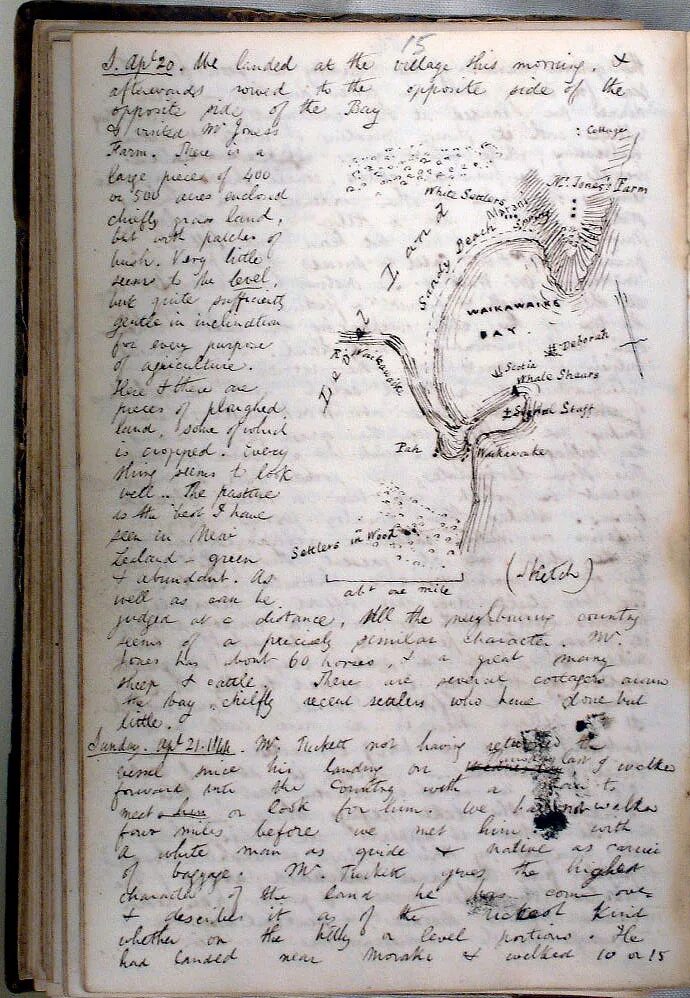 15
S. Apl 20. We landed at the village this morning, &
afterwards rowed to the opposite side of the
opposite side of the Bay
& visited Mr Jones's
Farm. There is a
large pieces of 400
or 500 acres enclosed
chiefly grass land,
but with patches of
bush. Very little
seems to be level,
but quite sufficiently
gentle in inclination
for every purpose
of agriculture.
Here & there are
pieces of ploughed
land, some of which
is cropped. Every
thing seems to look
well. The pasture
is the best I have
seen in New
Zealand – green
& abundant. As
well as can be
judged at a distance, all the neighbouring country
seems of a precisely similar character. Mr.
Jones has about 60 horses, & a great many
sheep & cattle. There are several cottagers
the bay, chiefly recent settlers who have done but
little.
: Cottages
Mr. Jones's Farm
White Settlers
Sandy Beach
Land
WAIKAWAITE
BAY.
Deborah
Scotia
Whale Shears
Signal Staff
R. Waikawaite
Pah
Waikawaite
Settlers in Wood
abt one mile
(Sketch)
Sunday. Apl 21. 1844. Mr. Tuckett not having returned to the
vessel since his landing on last I walked
forward into the country with a man to
meet him or look for him. We had not walked
four miles before we met him with
a white man as guide & native as carrier
of baggage. Mr. Tuckett gives the highest
character of the land he has come over
& describes it as of the richest kind
whether on the hilly or level portions. He
had landed near Moraki & walked 10 or 15